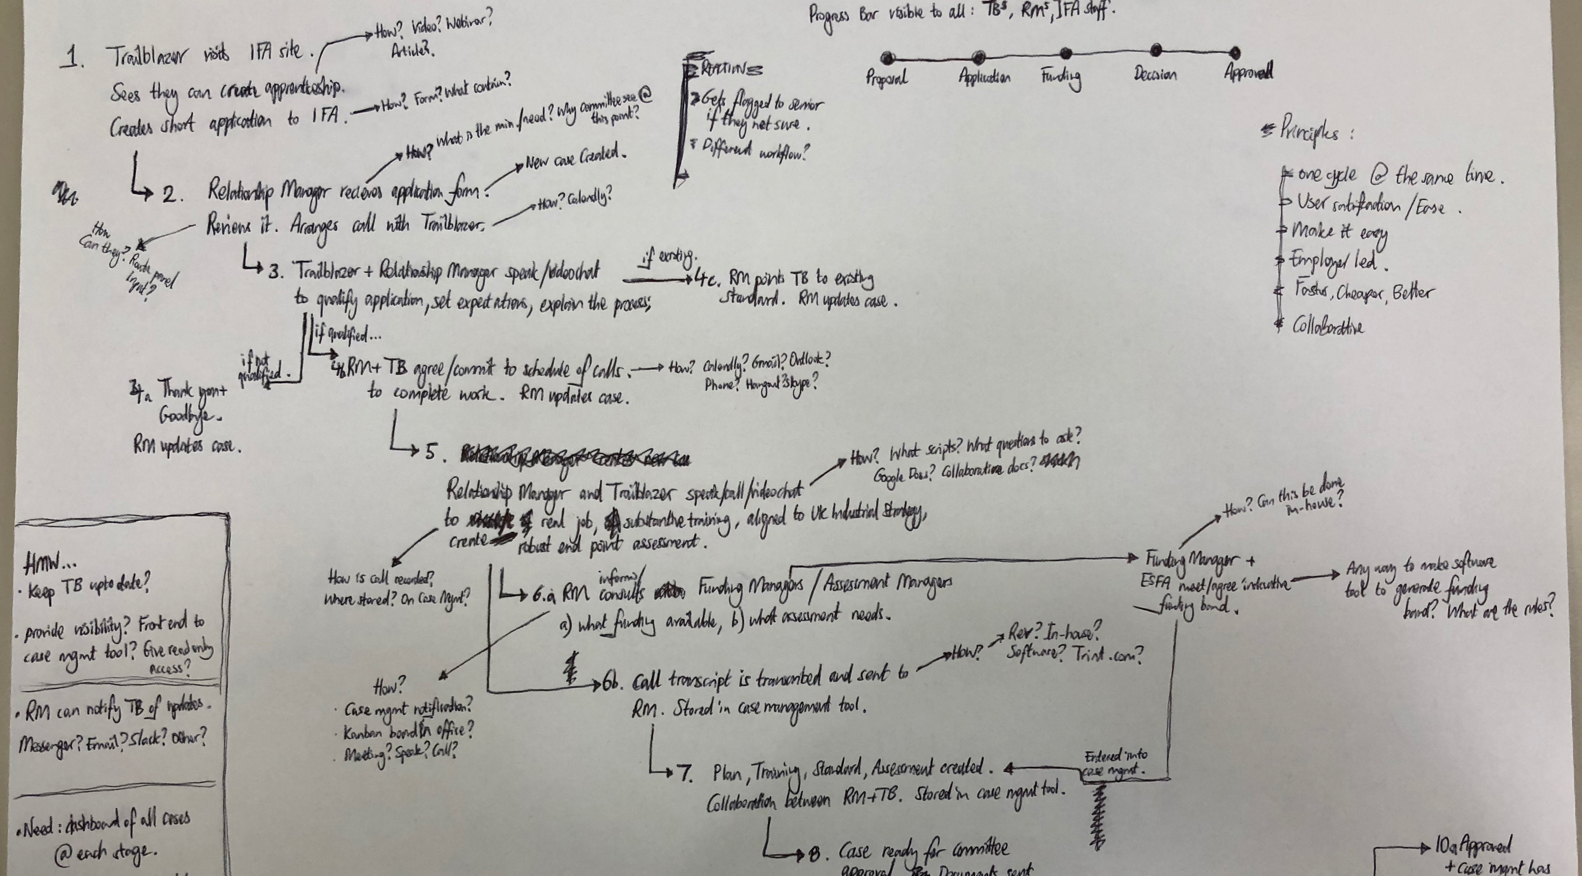 Progress Bar visible to all: TBs, RMs, IFA staff.
Proposal
Application
Funding
Decision
Approval
1. Trailblazer visits IFA site.
How? Video? Webinar?
Article?
Sees they can create apprenticeship.
Creates short application to IFA.
How? Form? What contain?
Gets flagged to senior
if they not sure.
Different workflow?
How? What is the min. need? Why committee see @
this point?
New case Created.
2. Relationship Manager recieves application form.
Reviews it. Arranges call with Trailblazer.
How? Calendly?
How
Can they? Route panel
Input?
3. Trailblazer + Relationship Manager speak/videochat
to qualify application, set expectations, explain the process;
if existing.
4c. RM points TB to existing
Standard. RM updates case.
if qualified...
if not
qualified.
a Thank you +
Goodbye.
RM updates case.
4b RM + TB agree/commit to schedule of calls.
to complete work. RM updates case.
How? Calendly? Gmail? Outlook?
Phone? Hangout? Skype?
5.
Relationship Manager and Trailblazer speak/call/videochat
to create real job, substantive training, aligned to UK Industrial Strategy,
robust end point assessment.
How? What scripts? What questions to ask?
Google Docs? Collaborative docs?
How is call recorded?
Where stored? On Case Mgmt?
6.a RM informs/
consults Funding Managers / Assessment Managers
a) what funding available, b) what assessment needs.
Funding Manager +
ESFA meet/agree indicative
funding band.
How? Can this be done
in-house?
Any way to make software
tool to generate funding
band? What are the rules?
How?
· Case mgmt notification?
· Kanban board in office?
· Meeting? Speak? Call?
6b. Call transcript is transcribed and sent to
RM. Stored in case management tool.
How?
Rev? In-house?
Software? Trint.com?
7. Plan, Training, Standard, Assessment created.
Collaboration between RM+TB. Stored in case mgmt tool.
Entered into
case mgmt.
8. Case ready for committee
approval. Documents sent
10a Approved
+ Case mgmt has
Principles:
one cycle @ the same time.
User satisfaction / Ease.
Make it easy
Employer led.
Faster, Cheaper, Better
Collaborative
HMW...
· Keep TB upto date?
· provide visibility? Front end to
case mgmt tool? Give read only
Access?
· RM can notify TB of updates.
Messenger? Email? Slack? Other?
· Need: dashboard of all cases
@ each stage.